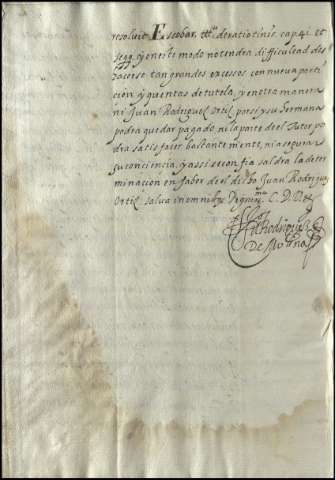 resolvio Escobar de ratiotinis cap. 41. et
seqq. y en este modo no tendra dificultad des
azerse tan grandes excessos con nueva parti
cion y quentas de tutela, y en otra manera
ni Juan Rodriguez Ortil por si y su hermana
podra quedar pagado ni la parte de el Tutor po
dra satisfacer bastantemente, ni asegurar
su conciencia, y assi se confia saldra la deter
minacion en fabor de el dicho Juan Rodriguez
Ortil salva in omnibus D.
Rodriguez
De Molina